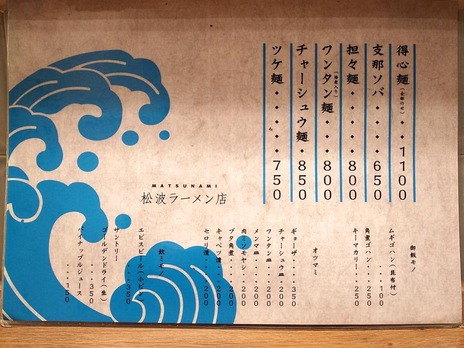 得心麺(全部のせ)・1100
支那ソバ・・・650
担々麺・・・800
ワンタン麺・・800
チャーシュウ麺・850
ツケ麺・・・・750
MATSUNAMI
松波ラーメン店
御飯モノ
ムギゴハン
・・・100
角煮ゴハン・・250
キーマカリー・・250
オツマミ
ギョーザ・・350
チャーシュウ皿・・200
ワンタン皿・・200
メンマ皿・・200
肉ミソモヤシ・・200
ブタ角煮・・200
キャベツ漬・・200
セロリ漬・・200
飲ミモノ
エビスビール
・・・350
サントリー
ゴールデンドライ(生)
・・・350
パイナップルジュース
・・・150